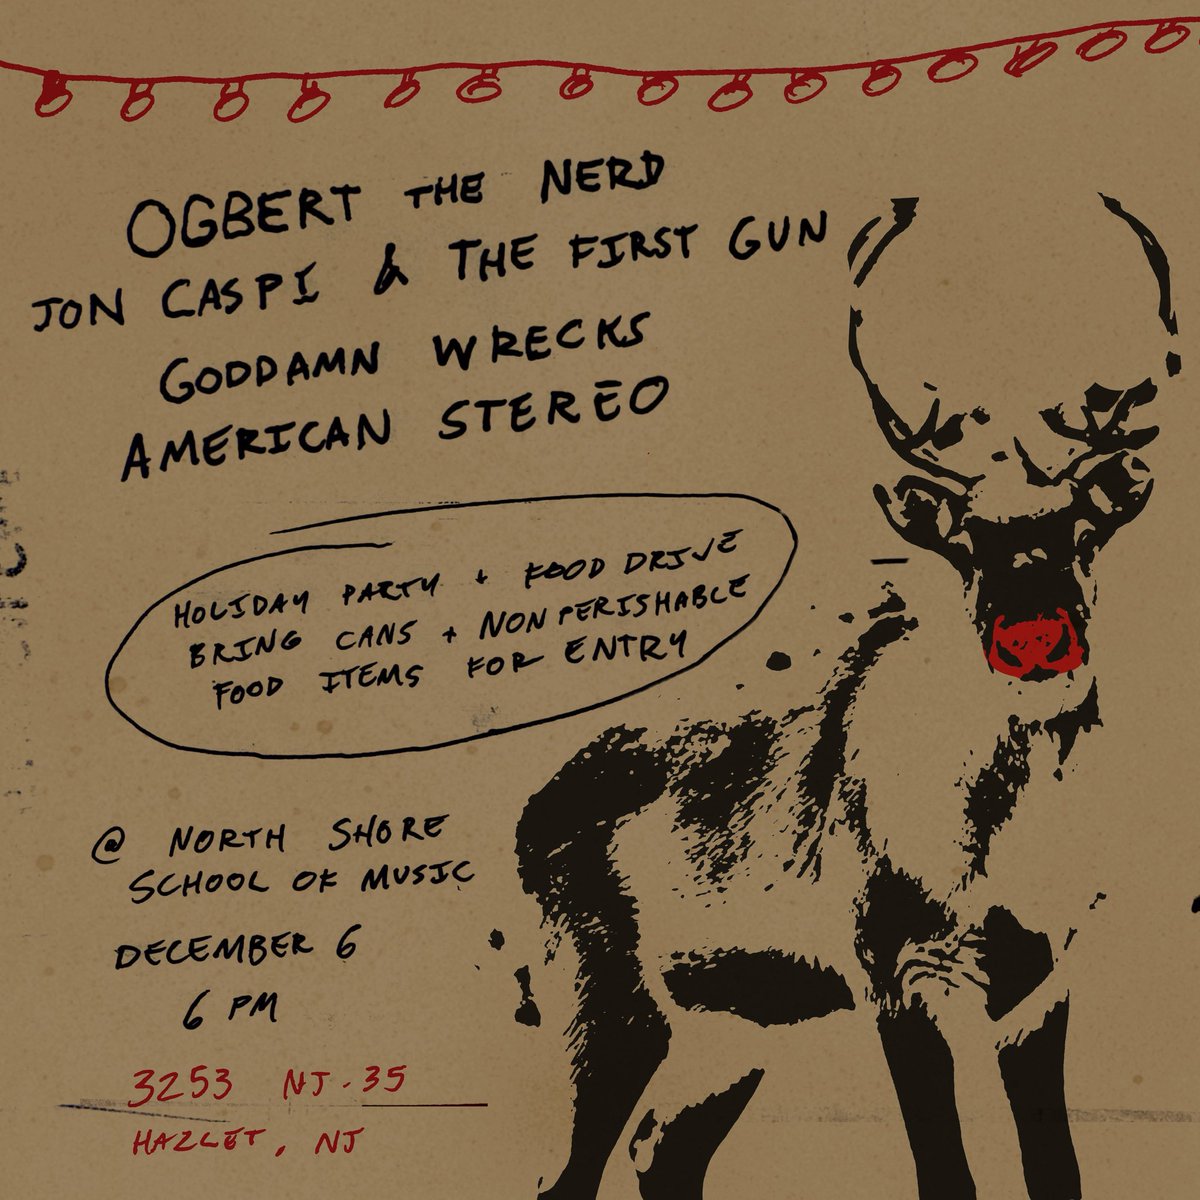 OGBERT THE NERD
JON CASPI & THE FIRST GUN
GODDAMN WRECKS
AMERICAN STEREO
HOLIDAY PARTY + FOOD DRIVE
BRING CANS + NON PERISHABLE
FOOD ITEMS FOR ENTRY
@ NORTH SHORE
SCHOOL OF MUSIC
DECEMBER 6
6 PM
3253 NJ-35
HAZLET, NJ